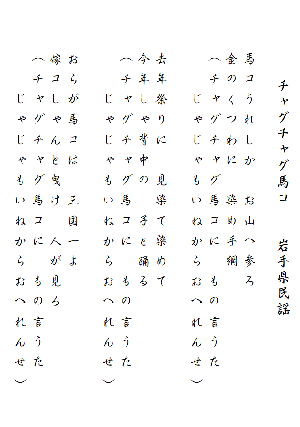 チャグチャグ馬コ　　岩手県民謡
馬コうれしか　お山へ参ろ
金のくつわに　染め手綱
（チャグチャグ馬コに　もの言うた
じゃじゃもいねからおへれんせ）
去年祭りに　見染めて染めて
今年しゃ背中の　子と踊る
（チャグチャグ馬コに　もの言うた
じゃじゃもいねからおへれんせ）
おらが馬コは　三国一よ
嫁コしゃんと曳け　人が見る
（チャグチャグ馬コに　もの言うた
じゃじゃもいねからおへれんせ）